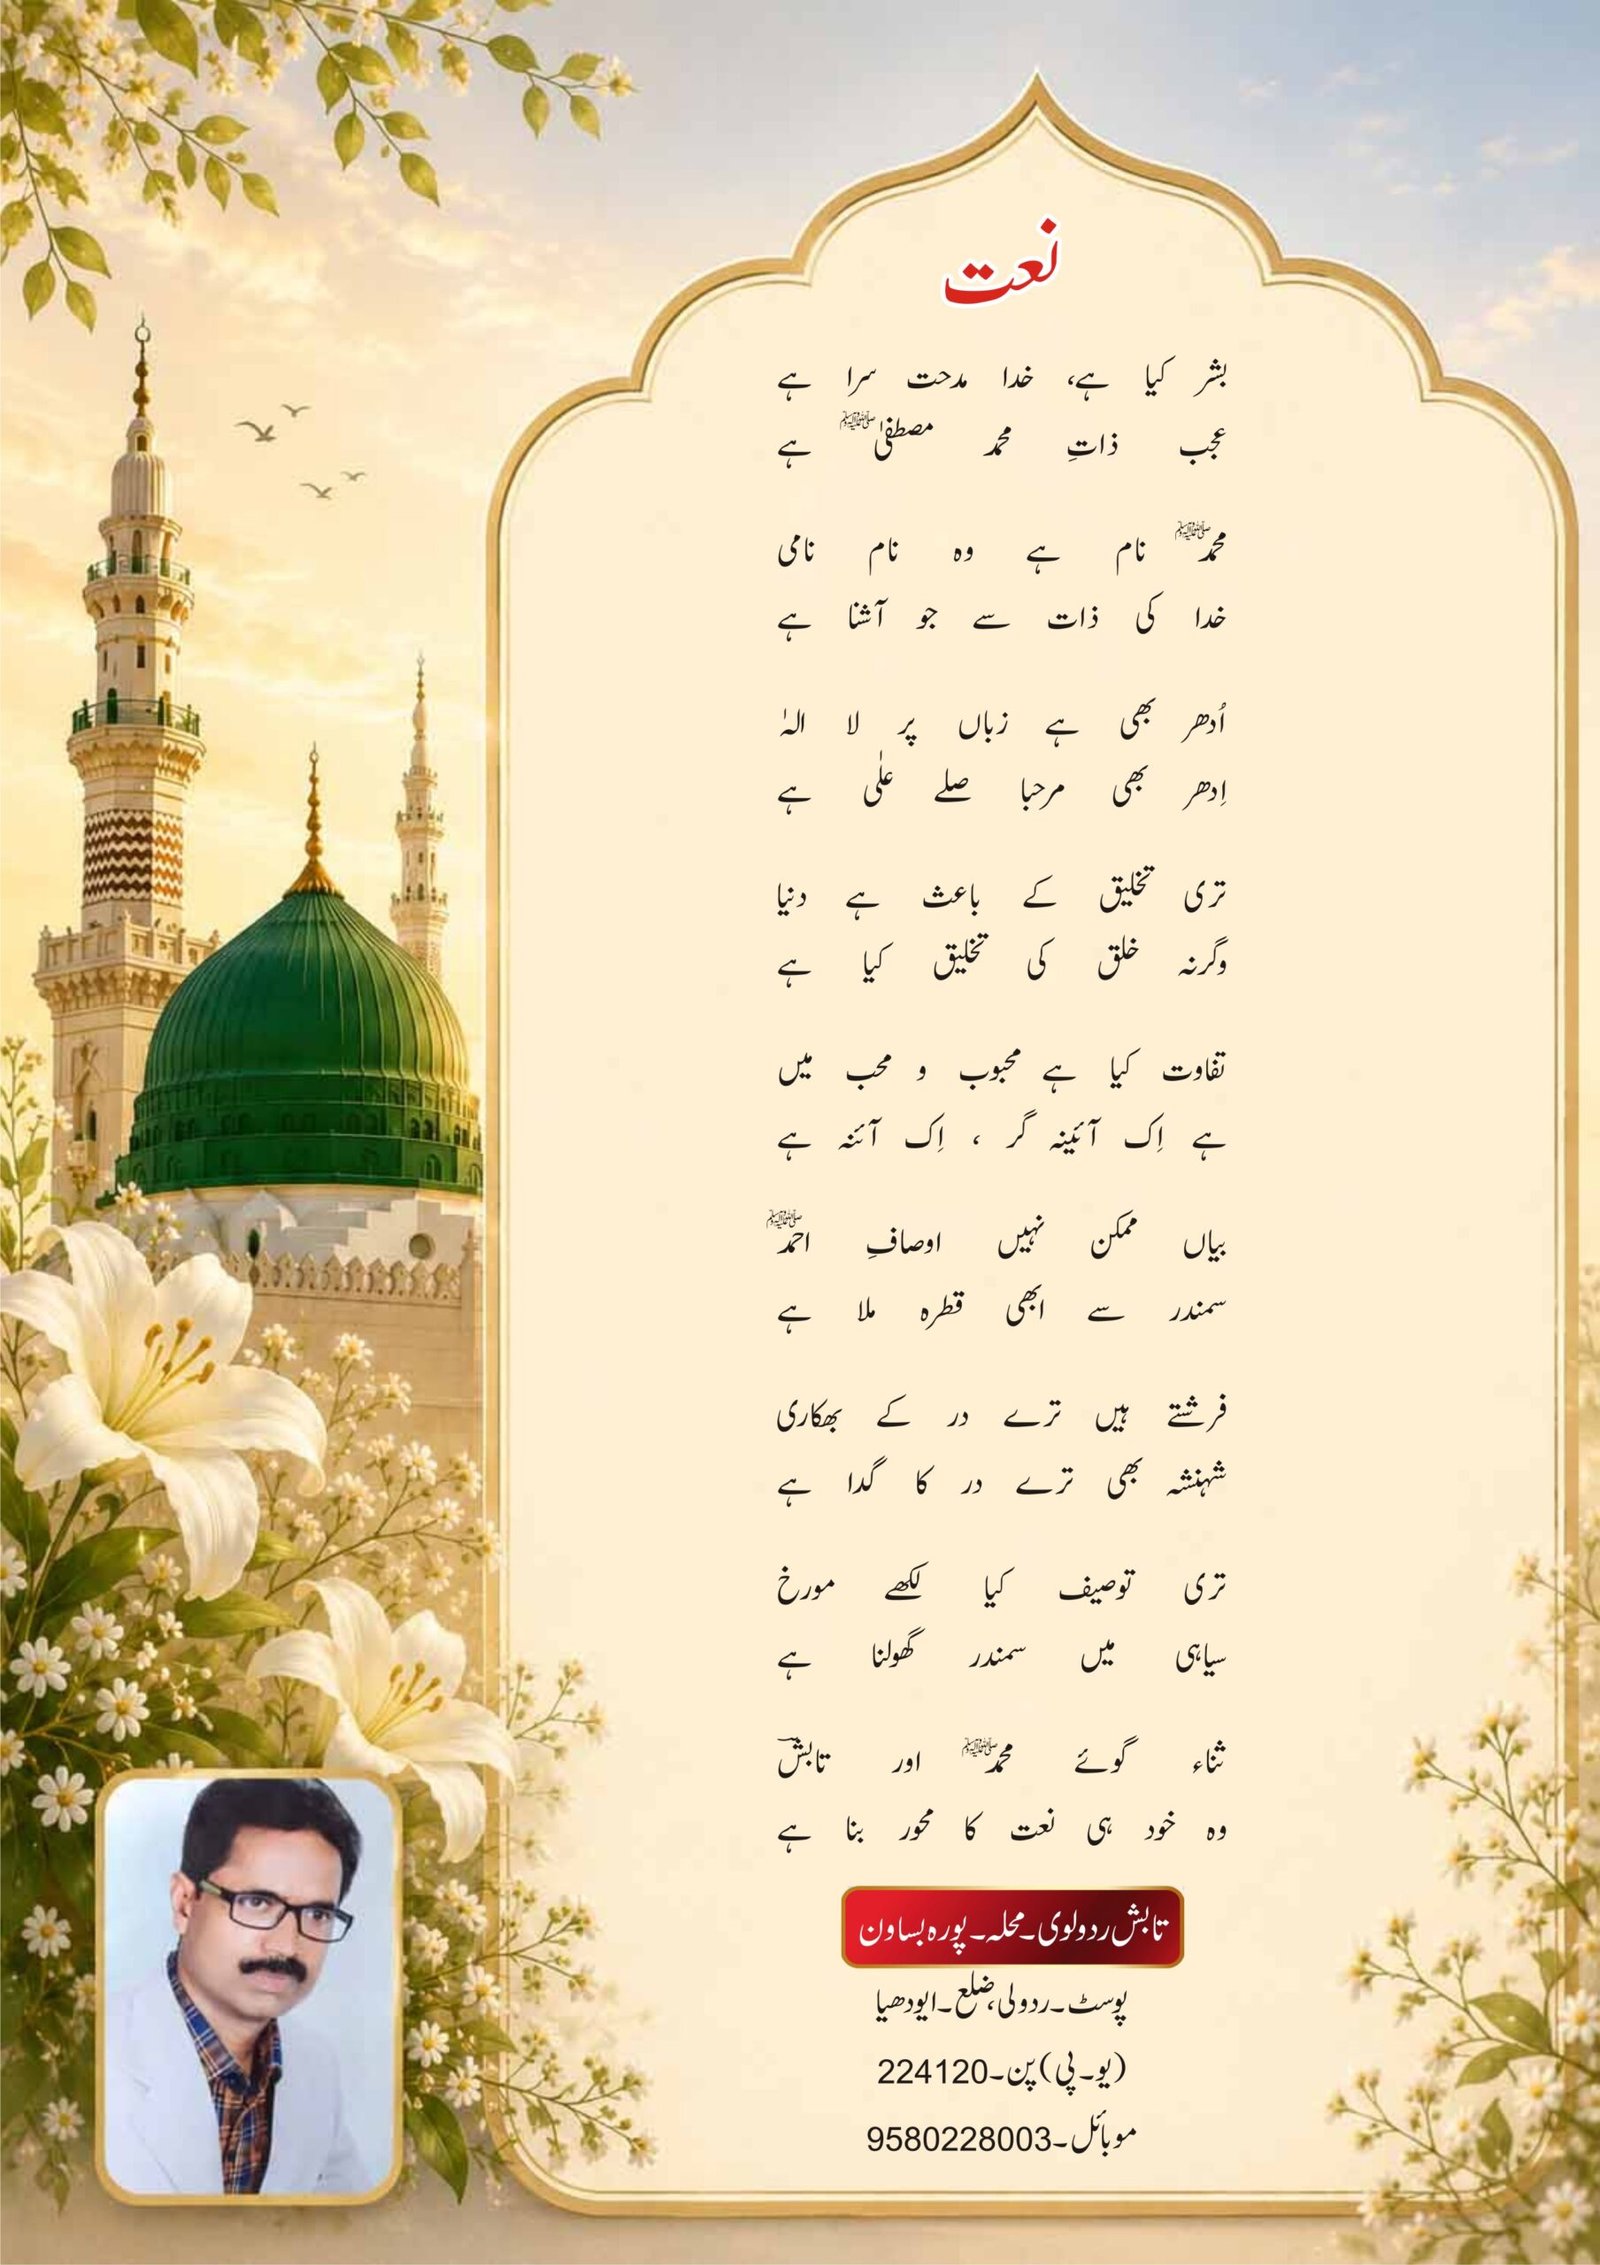 نعت
بشر کیا ہے، خدا مدحت سرا ہے
عجب ذاتِ محمد مصطفیٰ ﷺ ہے
محمد ﷺ نام ہے وہ نام نامی
خدا کی ذات سے جو آشنا ہے
اُدھر بھی ہے زباں پر لا الہٰ
اِدھر بھی مرحبا صلے علٰی ہے
تری تخلیق کے باعث ہے دنیا
وگرنہ خلق کی تخلیق کیا ہے
تفاوت کیا ہے محبوب و محب میں
ہے اِک آئینہ گر ، اِک آئنہ ہے
بیاں ممکن نہیں اوصافِ احمد ﷺ
سمندر سے ابھی قطرہ ملا ہے
فرشتے ہیں ترے در کے بھکاری
شہنشہ بھی ترے در کا گدا ہے
تری توصیف کیا لکھے مورخ
سیاہی میں سمندر گھولنا ہے
ثناء گوئے محمد ﷺ اور تابشؔ
وہ خود ہی نعت کا محور بنا ہے
تابش ردولوی۔محلہ۔پورہ بساون
پوسٹ۔ردولی،ضلع۔ایودھیا
(یو۔پی)پن۔224120
موبائل۔9580228003